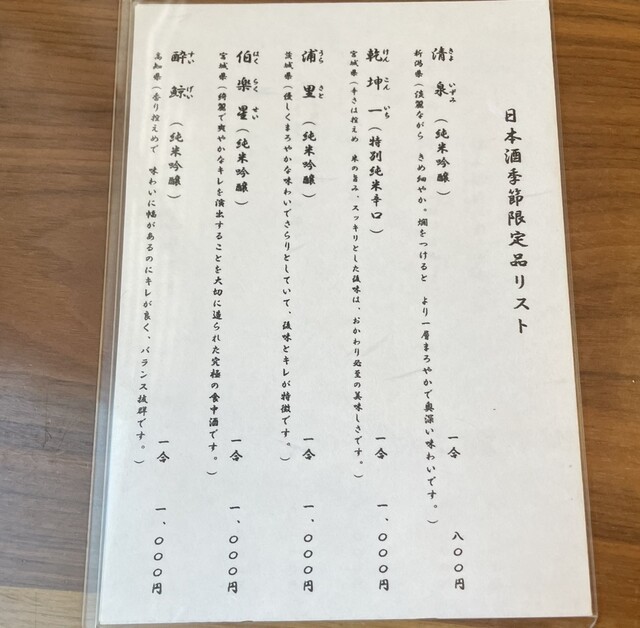 日本酒季節限定品リスト
清泉（純米吟醸） 一合 八〇〇円
きよ いずみ
新潟県（淡麗ながら きめ細やか。燗をつけると より一層まろやかで奥深い味わいです。）
乾坤一（特別純米辛口） 一合 一、〇〇〇円
けん こん いち
宮城県（辛さは控えめ 米の旨み、スッキリとした後味は、おかわり必至の美味しさです。）
浦里（純米吟醸） 一合 一、〇〇〇円
うら さと
茨城県（優しくまろやかな味わいでさらりとしていて、後味とキレが特徴です。）
伯楽星（純米吟醸） 一合 一、〇〇〇円
はく らく せい
宮城県（綺麗で爽やかなキレを演出することを大切に造られた究極の食中酒です。）
酔鯨（純米吟醸） 一合 一、〇〇〇円
すい げい
高知県（香り控えめで、味わいに幅があるのにキレが良く、バランス抜群です。）